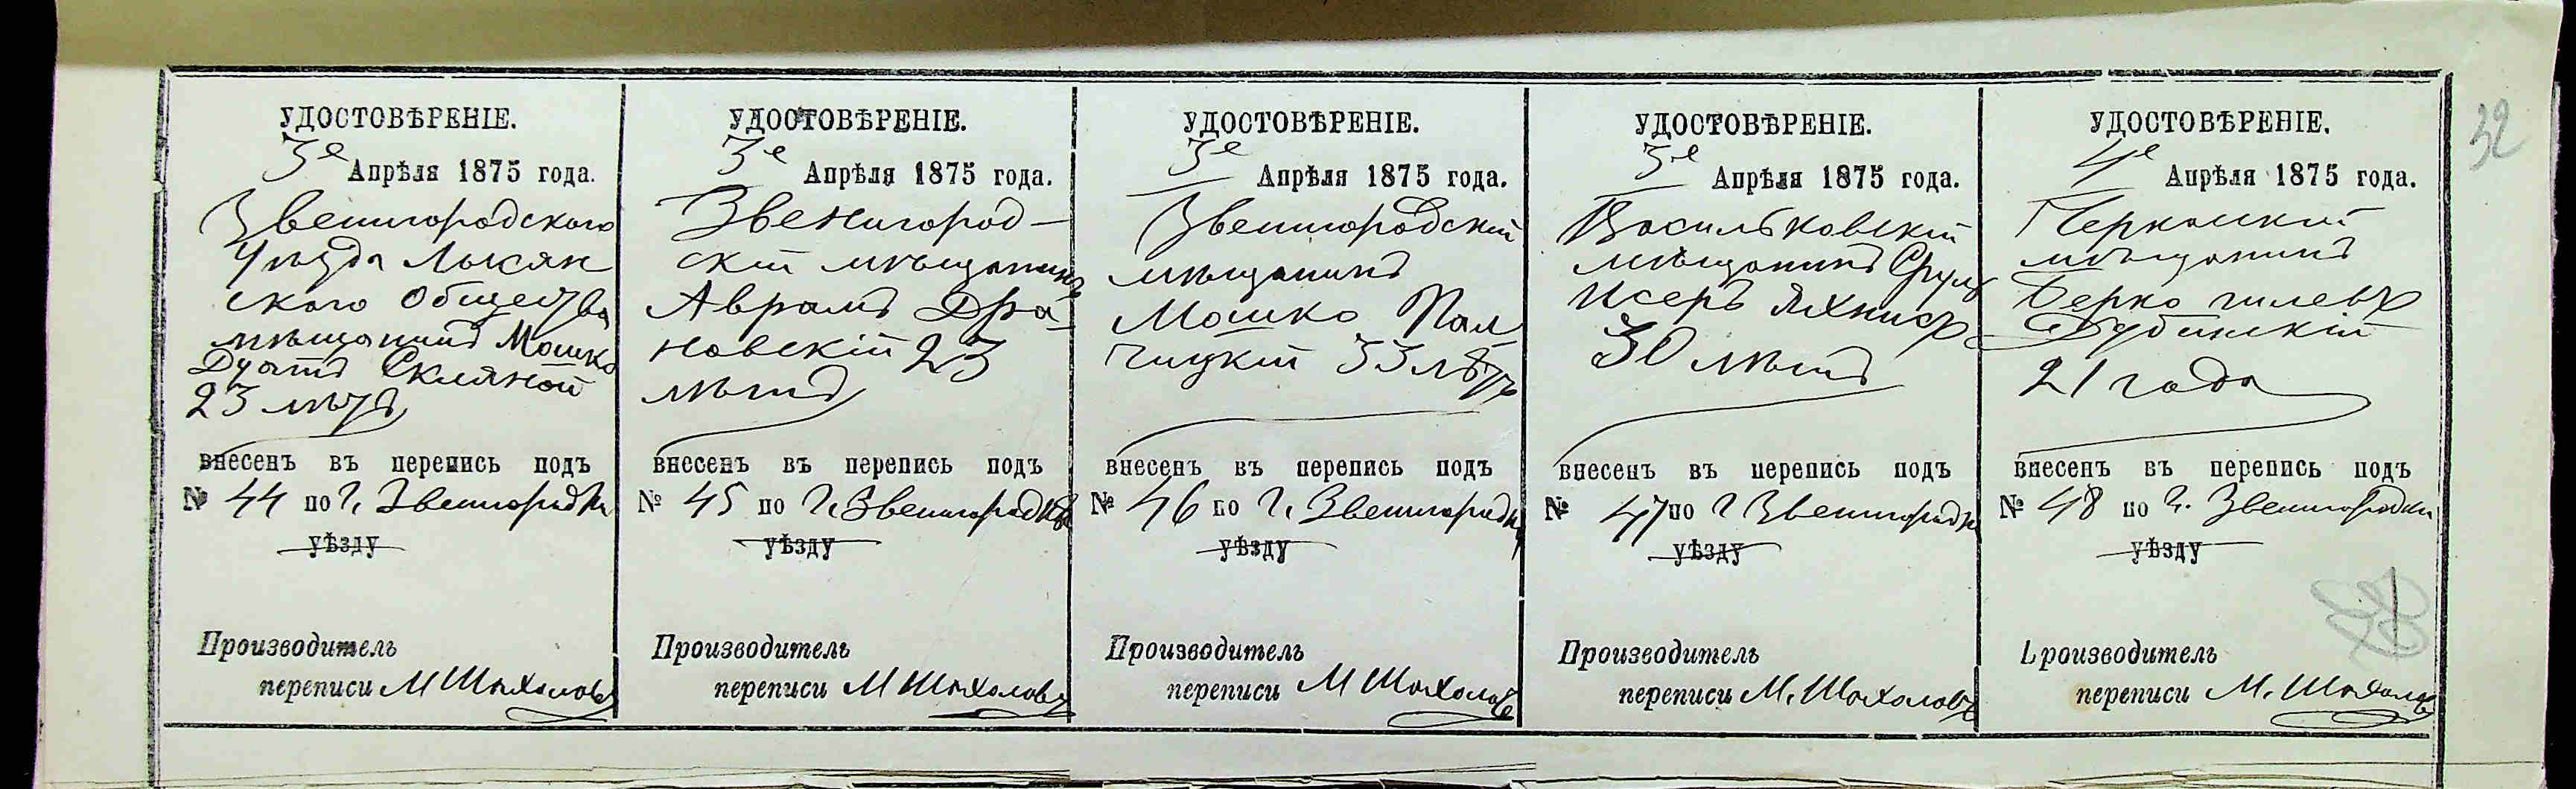 32
УДОСТОВѢРЕНІЕ.
3е Апрѣля 1875 года.
Звенигородского
Уѣзда Лысян
ского Общества
мѣщанинъ Мошко
Дуатъ Скляной
23 лѣтъ
внесенъ въ перепись подъ
№ 44 по г. Звенигородки
уѣзду
Производитель
переписи М Шахаловъ
УДОСТОВѢРЕНІЕ.
3е Апрѣля 1875 года.
Звенигород-
скій мѣщанинъ
Аврамъ Дра-
новскій 23
лѣтъ
внесенъ въ перепись подъ
№ 45 по г. Звенигородкѣ
уѣзду
Производитель
переписи М Шахаловъ
УДОСТОВѢРЕНІЕ.
3е Апрѣля 1875 года.
Звенигородскій
мѣщанинъ
Мошко Пал
чицкій 33 лѣтъ
внесенъ въ перепись подъ
№ 46 по г. Звенигородки
уѣзду
Производитель
переписи М Шахаловъ
УДОСТОВѢРЕНІЕ.
3е Апрѣля 1875 года.
Васильковскій
мѣщанинъ Сруль
Исеръ Яхнисъ
30 лѣтъ
внесенъ въ перепись подъ
№ 47 по г Звенигородки
уѣзду
Производитель
переписи М. Шахаловъ
УДОСТОВѢРЕНІЕ.
4е Апрѣля 1875 года.
Черкаскій
мѣщанинъ
Берко
Дубинскій
21 года
внесенъ въ перепись подъ
№ 48 по г. Звенигородки
уѣзду
Производитель
переписи М. Шахаловъ